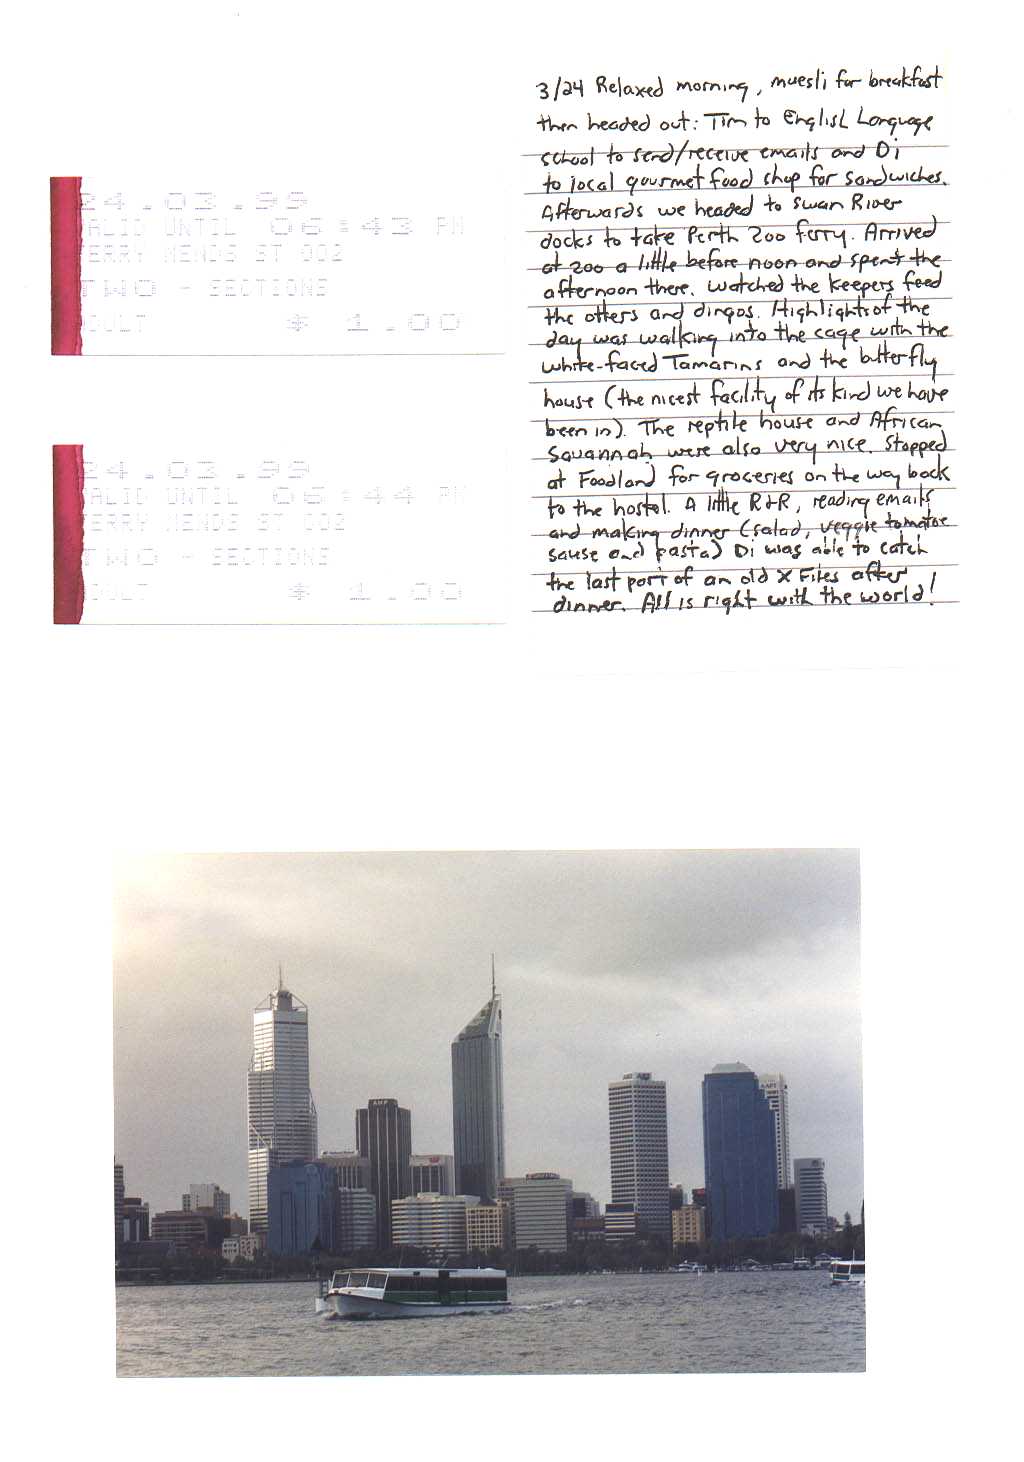 24.03.99
ALID UNTIL 06:43 PM
ERRY MENDS ST 002
TWO - SECTIONS
DULT $ 1.00
24.03.99
ALID UNTIL 06:44 PM
ERRY MENDS ST 002
TWO - SECTIONS
DULT $ 1.00
3/24 Relaxed morning, muesli for breakfast
then headed out: Tim to English Language
school to send/receive emails and Di
to local gourmet food shop for sandwiches.
Afterwards we headed to Swan River
docks to take Perth Zoo ferry. Arrived
at zoo a little before noon and spent the
afternoon there. Watched the keepers feed
the otters and dingos. Highlights of the
day was walking into the cage with the
white-faced Tamarins and the butterfly
house (the nicest facility of its kind we have
been in). The reptile house and African
Savannah were also very nice. Stopped
at Foodland for groceries on the way back
to the hostel. A little R+R, reading emails
and making dinner (salad, veggie tomatoe
sause and pasta) Di was able to catch
the last part of an old X Files after
dinner. All is right with the world!
AMP